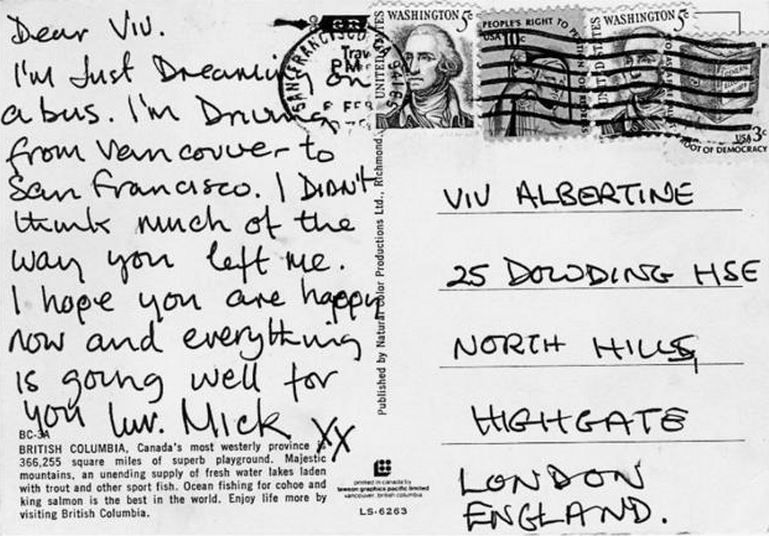 Dear Viv.
I'm Just Dreaming on
a bus. I'm Driving
from Vancouver to
San Francisco. I DIDN't
think much of the
way you left me.
I hope you are happy
now and everything
is going well for
you luv. Mick XX
BC-3A
BRITISH COLUMBIA, Canada's most westerly province is
366,255 square miles of superb playground. Majestic
mountains, an unending supply of fresh water lakes laden
with trout and other sport fish. Ocean fishing for cohoe and
king salmon is the best in the world. Enjoy life more by
visiting British Columbia.
Published by Natural Color Productions Ltd., Richmond,
printed in canada by
lawson graphics pacific limited
vancouver, british columbia
LS-6263
SAN FRANCISCO
PM
6 FEB
WASHINGTON 5c
UNITED STATES
PEOPLE'S RIGHT TO
USA 10c
WASHINGTON 5c
UNITED STATES
USA 3c
ROOT OF DEMOCRACY
VIV ALBERTINE
25 DOWDING HSE
NORTH HILL,
HIGHGATE
LONDON
ENGLAND.